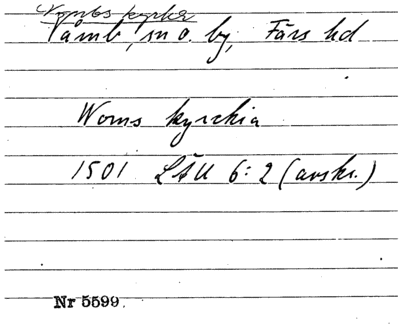 Vombs kyrka
Vámb, sn o. by, Färs hd
Woms kyrchia
1501 LÄU 6:2 (avskr.)
Nr 5599.